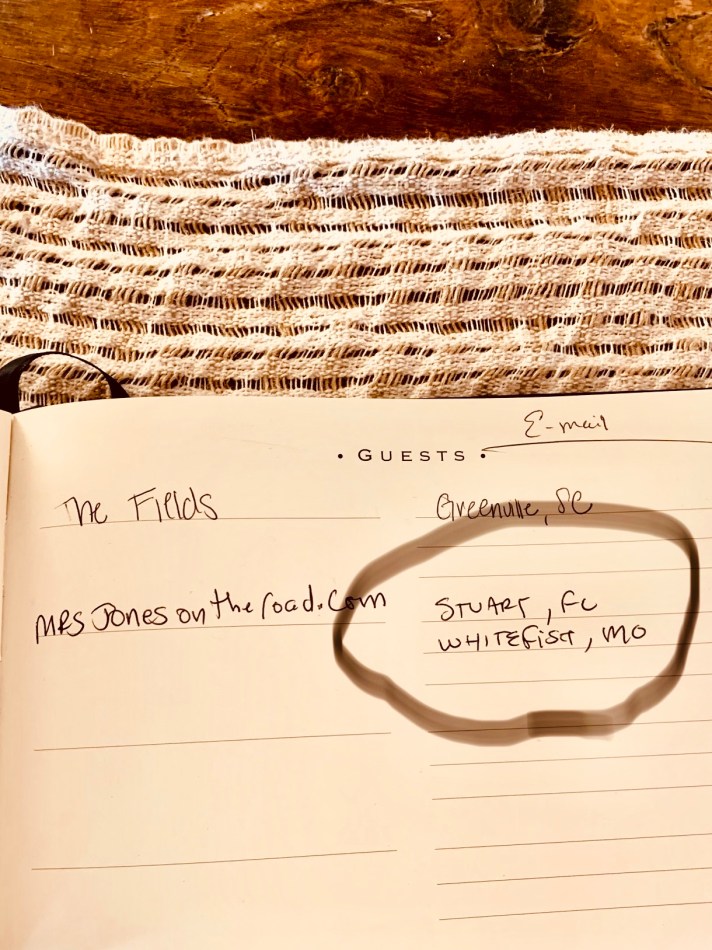 E-mail
• GUESTS •
The Fields
Greenville, SC
MRS Jones on the road.com
STUART, FL
WHITEFISH, MO